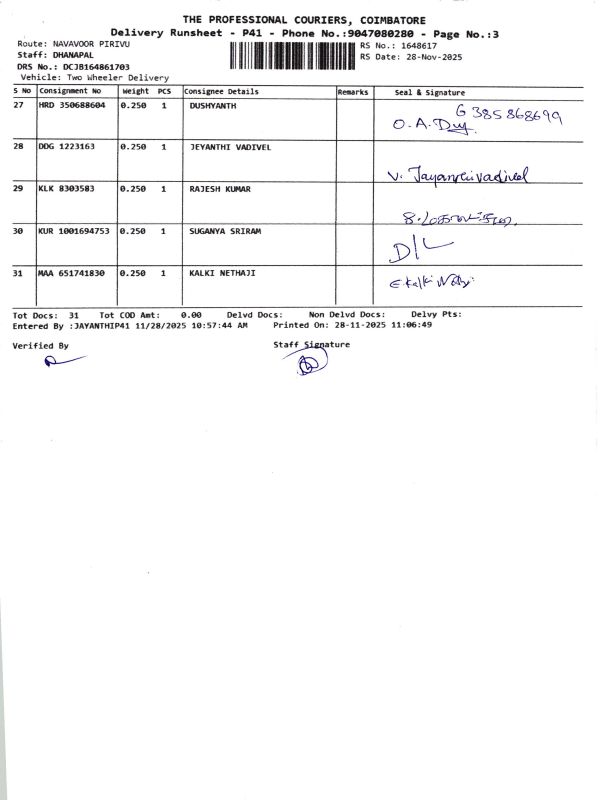 THE PROFESSIONAL COURIERS, COIMBATORE
Delivery Runsheet - P41 - Phone No.:9047080280 - Page No.:3
Route: NAVAVOOR PIRIVU
RS No.: 1648617
Staff: DHANAPAL
RS Date: 28-Nov-2025
DRS No.: DCJB164861703
Vehicle: Two Wheeler Delivery
S No Consignment No Weight PCS Consignee Details Remarks Seal & Signature
27 HRD 350688604 0.250 1 DUSHYANTH
O.A.
28 DDG 1223163 0.250 1 JEYANTHI VADIVEL
V. Jayanthi vadivel
29 KLK 8303583 0.250 1 RAJESH KUMAR
30 KUR 1001694753 0.250 1 SUGANYA SRIRAM
D/L
31 MAA 651741830 0.250 1 KALKI NETHAJI
Tot Docs: 31 Tot COD Amt: 0.00 Delvd Docs: Non Delvd Docs: Delvy Pts:
Entered By :JAYANTHIP41 11/28/2025 10:57:44 AM Printed On: 28-11-2025 11:06:49
Verified By Staff Signature